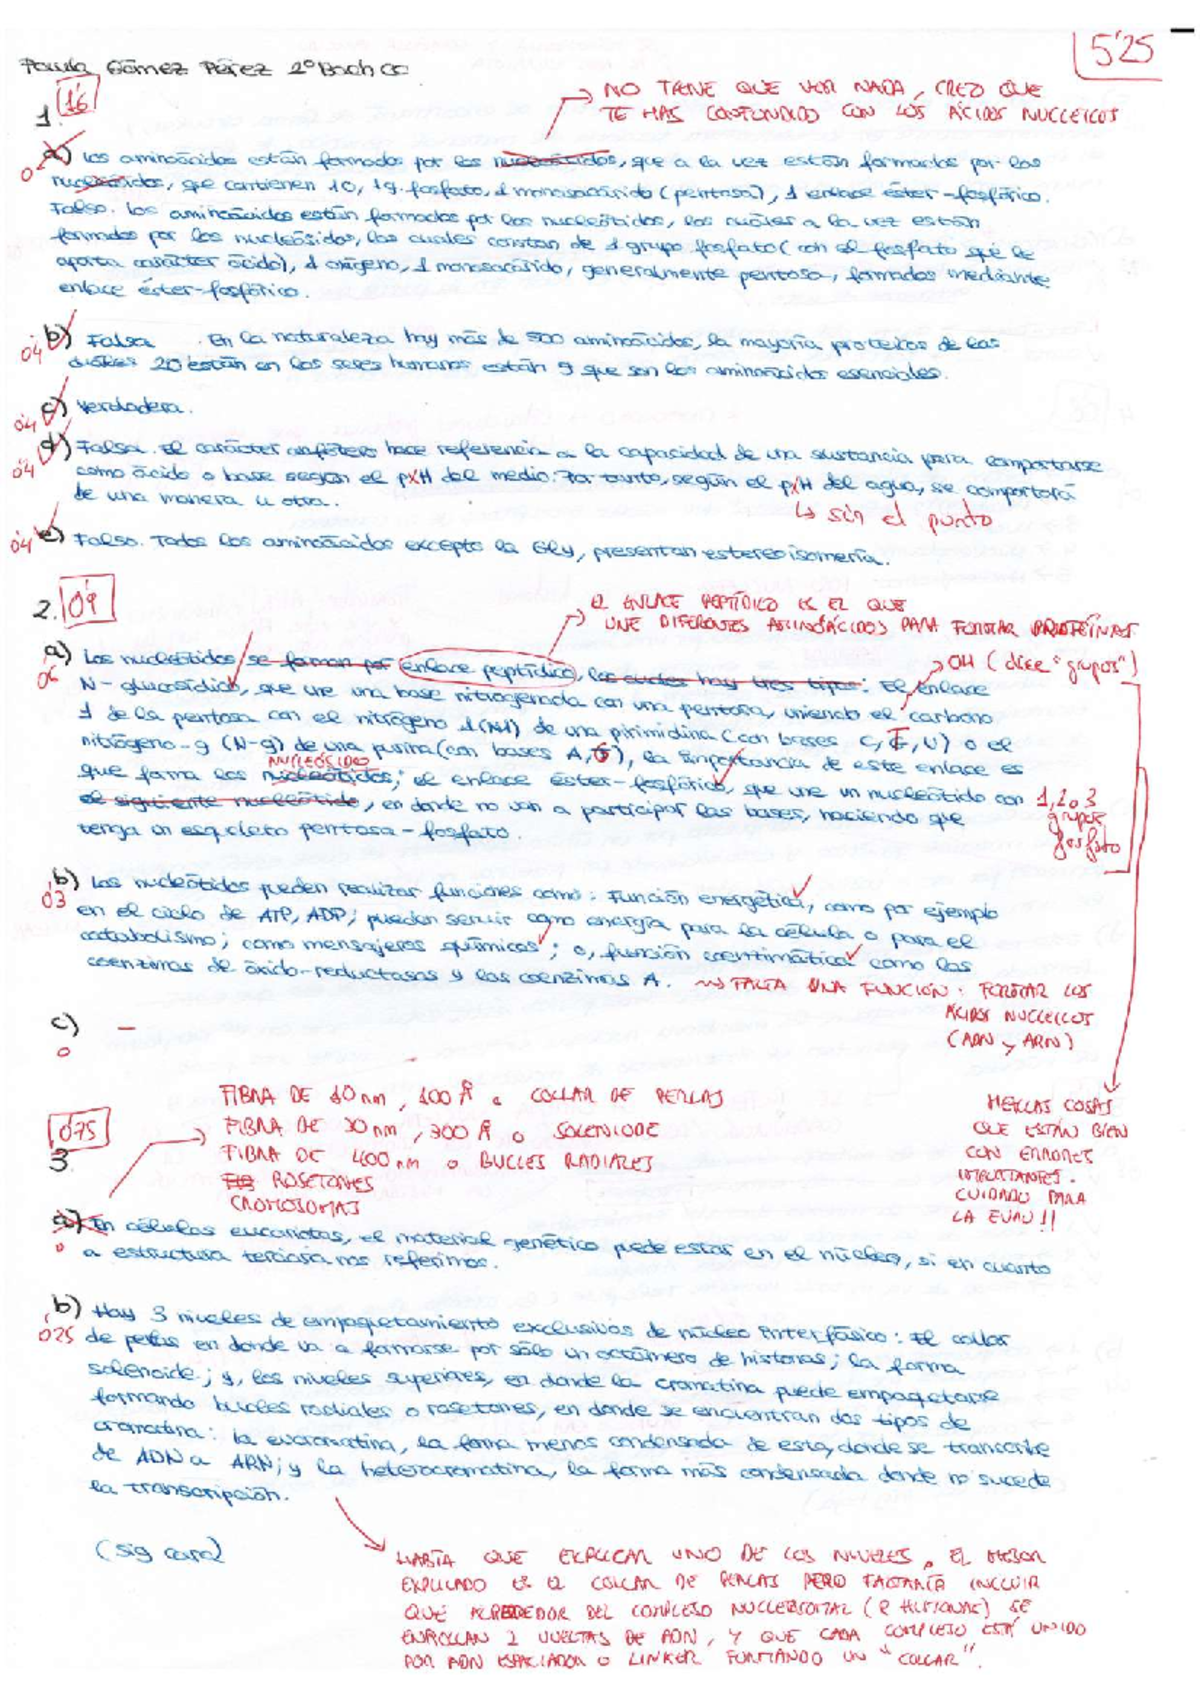 5'25
Paula Gómez Pérez 2º Bach CC
1. 1'6
NO TIENE QUE VER NADA, CREO QUE
TE HAS CONFUNDIDO CON LOS ÁCIDOS NUCLEICOS
0 a) Los aminoácidos están formados por los nucleótidos, que a la vez están formados por los
nucleósidos, que contienen 1O, 1g. fosfato, 1 monosacárido (pentosa), 1 enlace éster-fosfórico.
Falso. Los aminoácidos están formados por los nucleótidos, los cuáles a la vez están
formados por los nucleósidos, los cuales constan de 1 grupo fosfato (con el fosfato que le
aporta carácter ácido), 1 oxígeno, 1 monosacárido, generalmente pentosa, formados mediante
enlace éster-fosfórico.
0'4 b) Falsa. En la naturaleza hay más de 500 aminoácidos, la mayoría proteicos de los
cuáles 20 están en los seres humanos están 9 que son los aminoácidos esenciales.
0'4 c) Verdadera.
0'4 d) Falsa. El carácter anfótero hace referencia a la capacidad de una sustancia para comportarse
como ácido o base según el pH del medio. Por tanto, según el pH del agua, se comportará
de una manera u otra.
↳ sin el punto
0'4 e) Falso. Todos los aminoácidos excepto la Gly, presentan estereoisomería.
2. 0'9
EL ENLACE PEPTÍDICO ES EL QUE
UNE DIFERENTES AMINOÁCIDOS PARA FORMAR PROTEÍNAS
a) Los nucleótidos se forman por enlace peptídico, los cuales hay tres tipos: El enlace
→ OH (dice "grupos")
0'6 N-glucosídico, que une una base nitrogenada con una pentosa, uniendo el carbono
1 de la pentosa con el nitrógeno 1 (N-1) de una pirimidina (con bases C, T, U) o el
nitrógeno-9 (N-9) de una purina (con bases A, G), la importancia de este enlace es
NUCLEÓSIDO
que forma los nucleótidos; el enlace éster-fosfórico, que une un nucleótido con
1, 2 o 3
grupos
fosfato
el siguiente nucleótido, en donde no van a participar las bases, haciendo que
tenga un esqueleto pentosa-fosfato.
b) Los nucleótidos pueden realizar funciones como: Función energética, como por ejemplo
0'3 en el ciclo de ATP, ADP; pueden servir como energía para la célula o para el
catabolismo; como mensajeros químicos; o, función coenzimática como las
coenzimas de óxido-reductasas y las coenzimas A.
→ FALTA UNA FUNCIÓN: FORMAR LOS
ÁCIDOS NUCLEICOS
(ADN y ARN)
c) —
0
MEZCLAS COSAS
QUE ESTÁN BIEN
CON ERRORES
IMPORTANTES.
CUIDADO PARA
LA EVAU!!
FIBRA DE 10 nm, 100 Å o COLLAR DE PERLAS
FIBRA DE 30 nm, 300 Å o SOLENOIDE
FIBRA DE 400 nm o BUCLES RADIALES
ROSETONES
CROMOSOMAS
0'75
3.
a) En células eucariotas, el material genético puede estar en el núcleo, si en cuanto
0 a estructura terciaria nos referimos.
b) Hay 3 niveles de empaquetamiento exclusivos de núcleo interfásico: El collar
0'25 de perlas en donde va a formarse por sólo un octámero de histonas; la forma
solenoide; y, los niveles superiores, en donde la cromatina puede empaquetarse
formando bucles radiales o rosetones, en donde se encuentran dos tipos de
cromatina: la eucromatina, la forma menos condensada de esta, donde se transcribe
de ADN a ARN; y la heterocromatina, la forma más condensada donde no sucede
la transcripción.
(sig cara)
HABÍA QUE EXPLICAR UNO DE LOS NIVELES, EL MEJOR
EXPLICADO ES EL COLLAR DE PERLAS PERO FALTARÍA INCLUIR
QUE ALREDEDOR DEL COMPLEJO NUCLEOSOMAL (8 HISTONAS) SE
ENROLLAN 2 VUELTAS DE ADN, Y QUE CADA COMPLEJO ESTÁ UNIDO
POR ADN ESPACIADOR O LINKER FORMANDO UN "COLLAR".